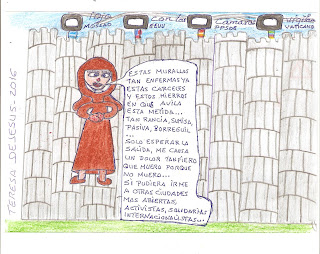 Ojo con las Cámaras Vigías
MORADO EEUU PPSOE VATICANO
ESTAS MURALLAS
TAN ENFERMAS YA
ESTAS CARCELES
Y ESTOS HIERROS
EN QUE AVILA
ESTA METIDA...
TAN RANCIA, SUMISA,
PASIVA, BORREGUIL
...
SOLO ESPERAR LA
SALIDA, ME CAUSA
UN DOLOR TAN FIERO
QUE MUERO PORQUE
NO MUERO...
SI PUDIERA IRME
A OTRAS CIUDADES
MAS ABIERTAS,
ACTIVISTAS, SOLIDARIAS
INTERNACIONALISTAS...
TERESA DE JESUS - 2016